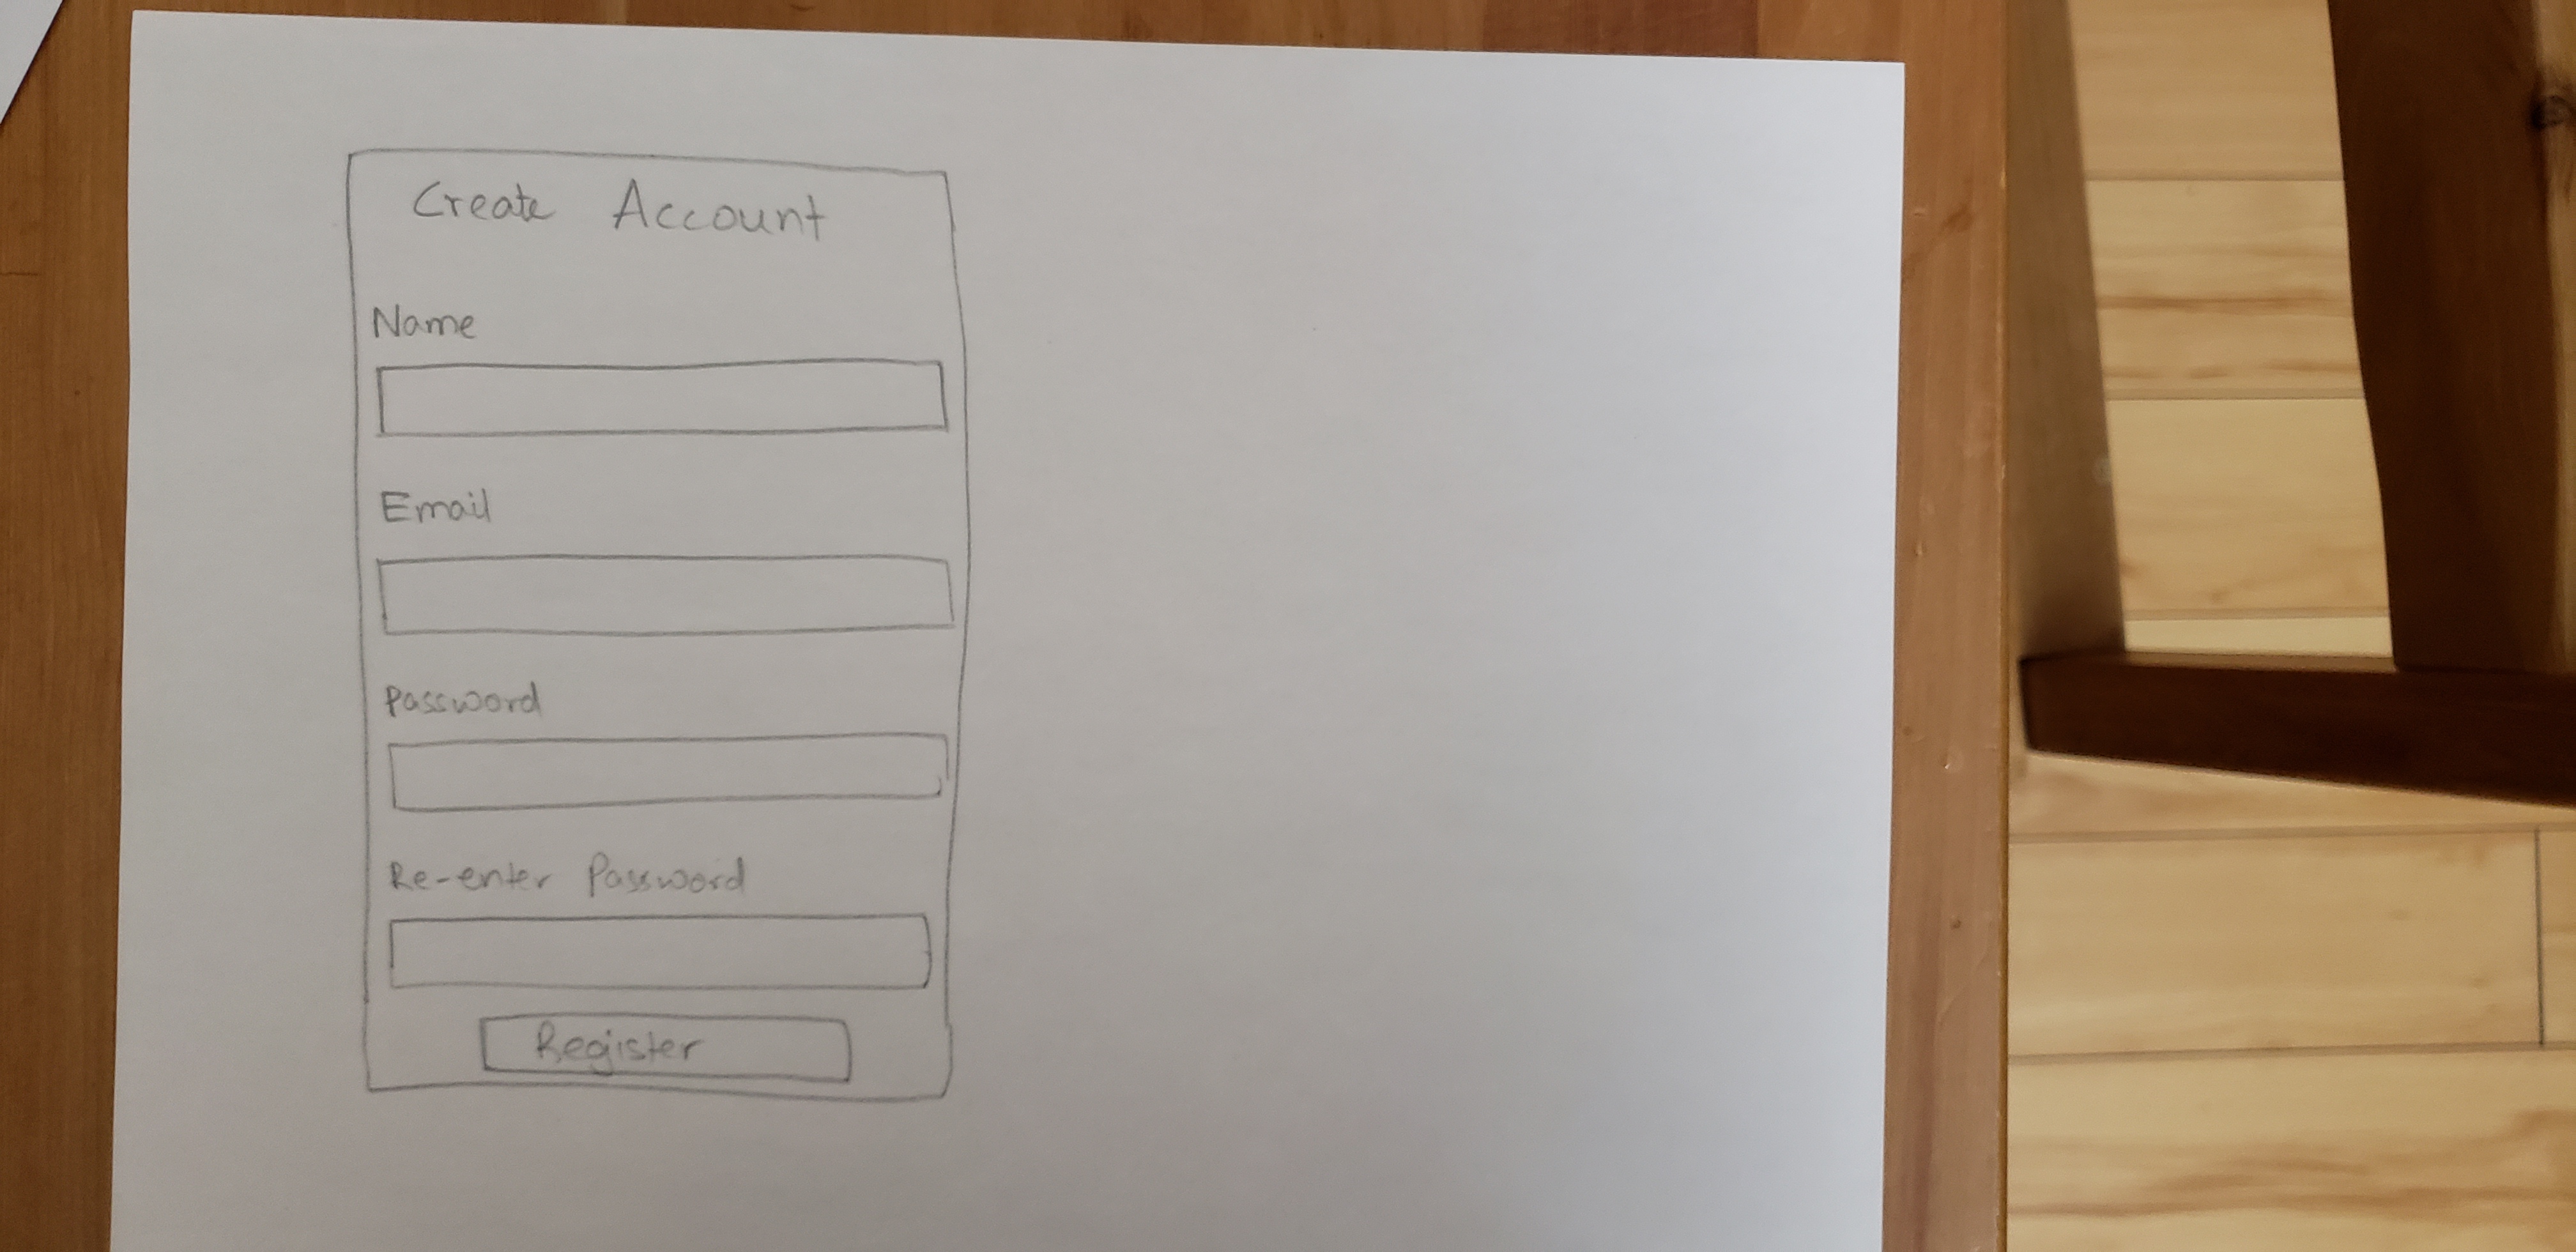 Create Account
Name
Email
Password
Re-enter Password
Register